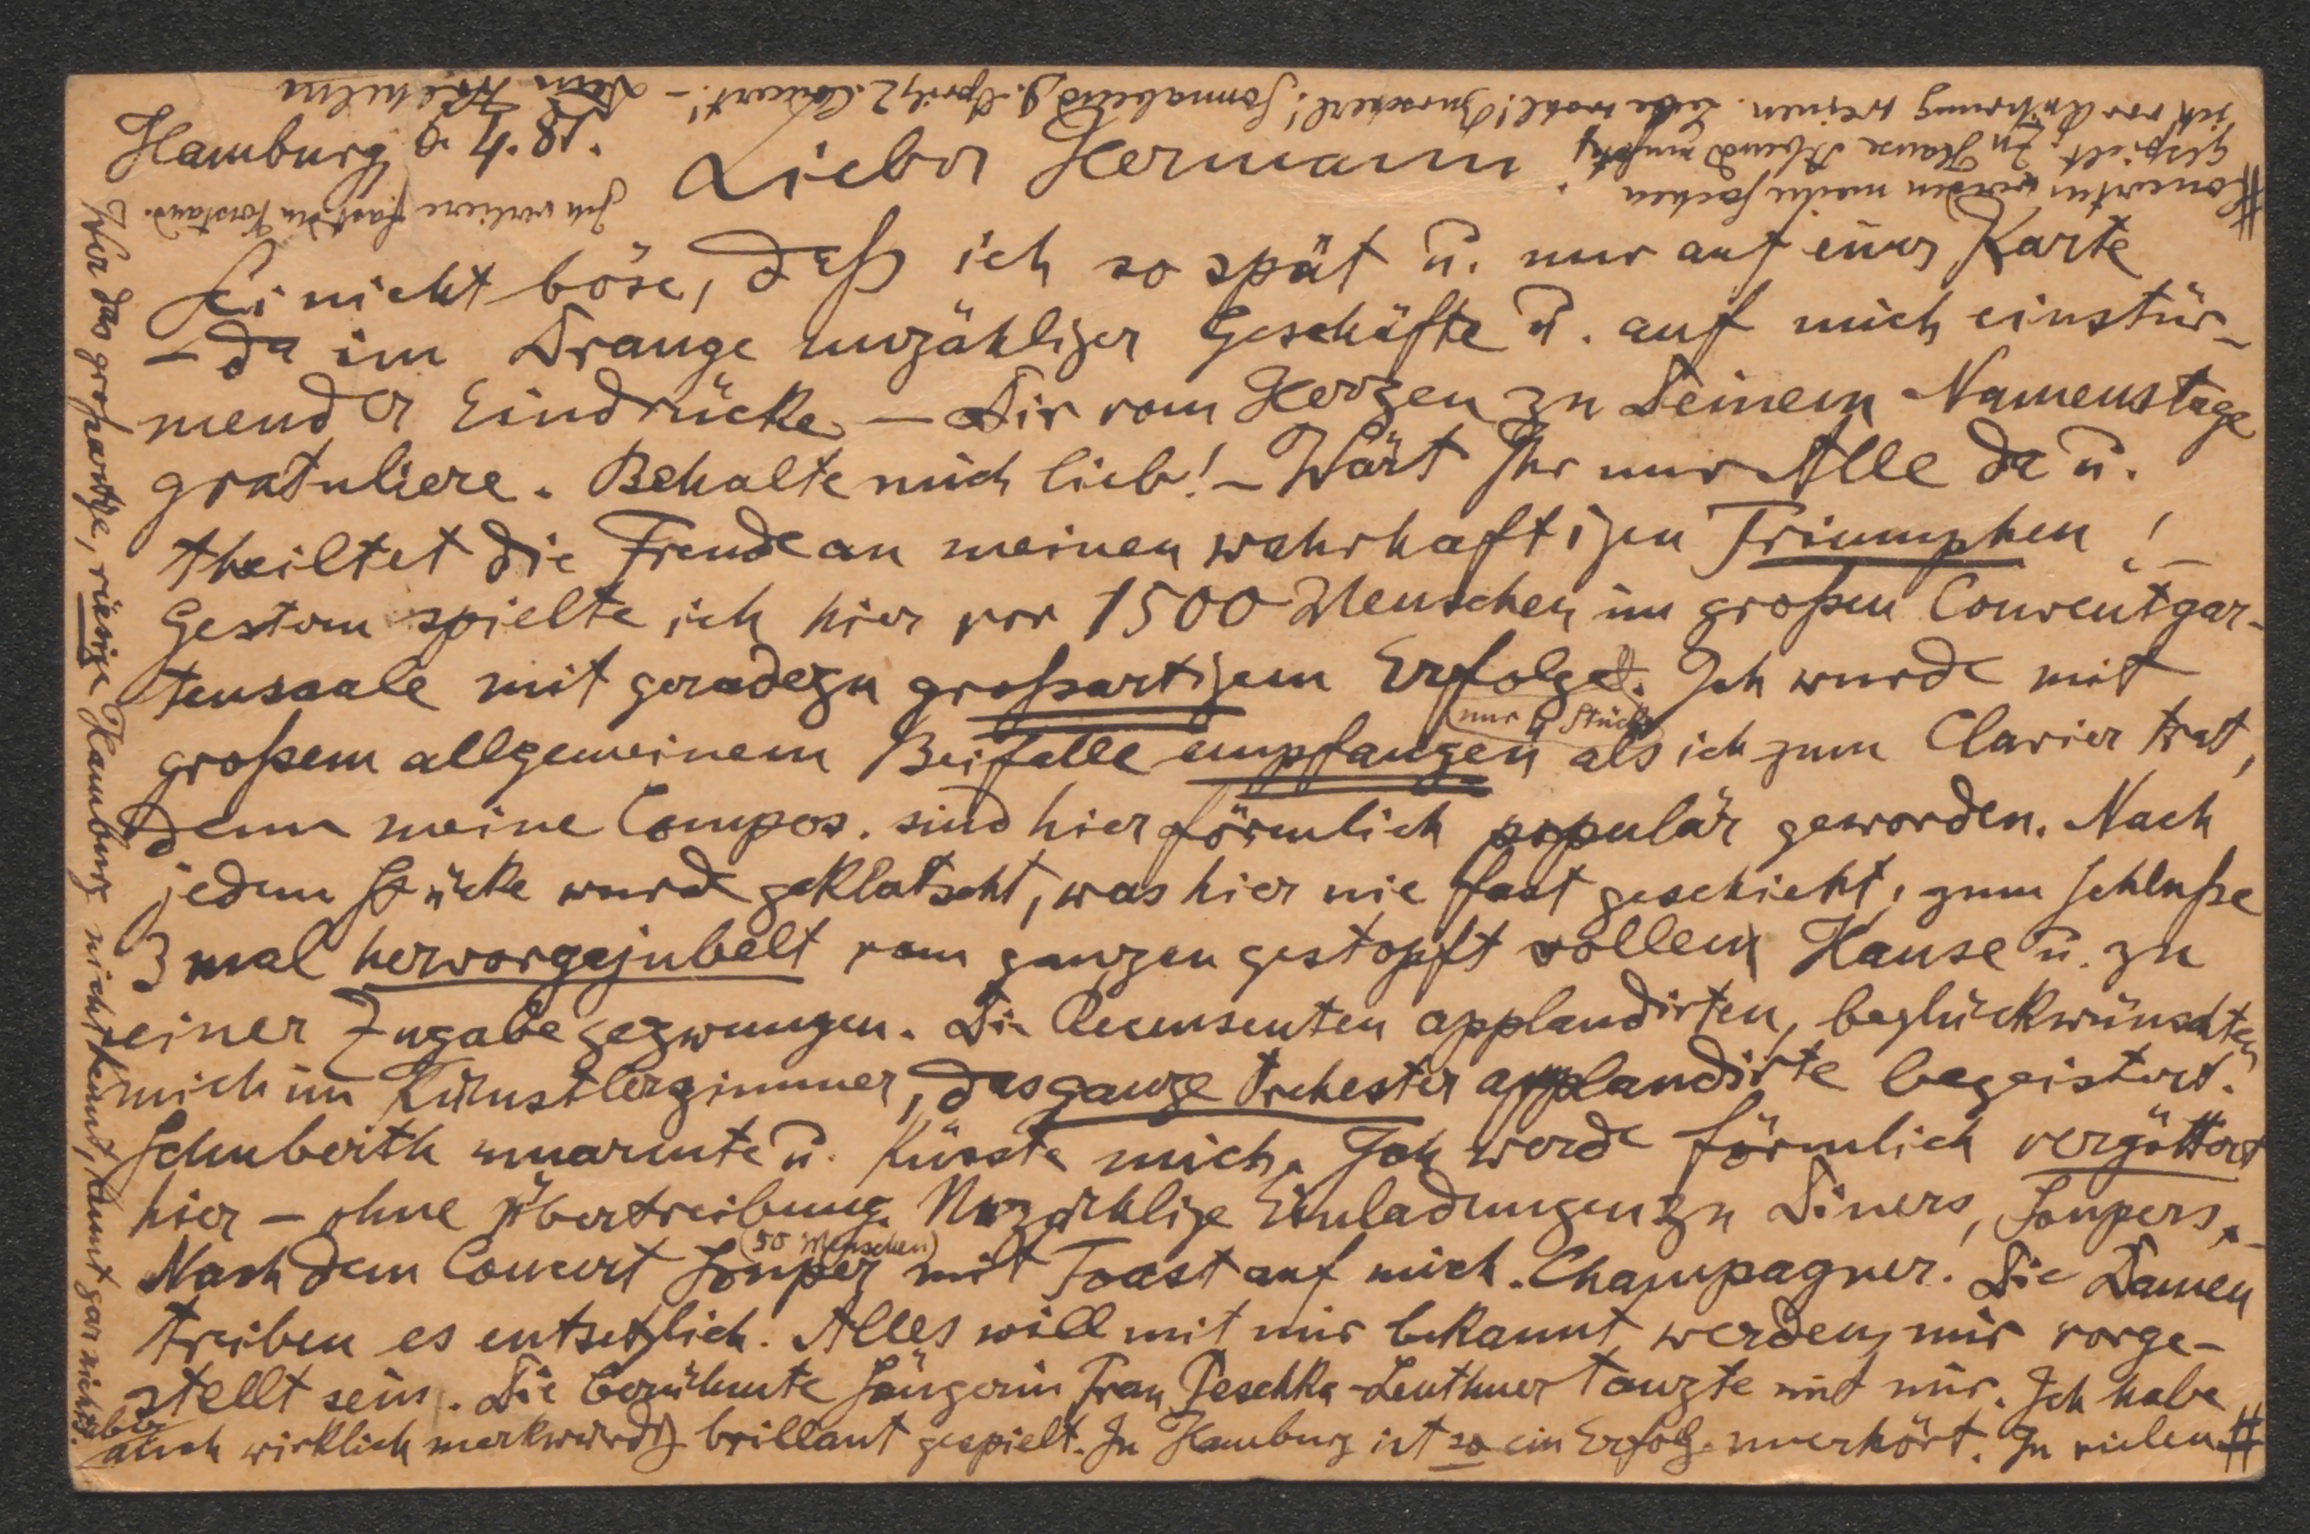 Hamburg 6. 4. 81.
Lieber Hermann!
Sei nicht böse, daß ich so spät u. nur auf einer Karte
– da im Drange unzähliger Geschäfte u. auf mich einstür-
mender Eindrücke – Dir vom Herzen zu Deinem Namenstage
gratuliere. Behalte mich lieb! – Wärt Ihr nur Alle da u.
theiltet die Freude an meinen wahrhaftigen Triumphen! –
Gestern spielte ich hier vor 1500 Menschen im großen Conventgar-
tensaale mit geradezu großartigem Erfolge. Ich wurde mit
(nur 4 Stücke)
großem allgemeinem Beifalle empfangen als ich zum Clavier trat,
denn meine Compos. sind hier förmlich populär geworden. Nach
jedem Stücke wurde geklatscht, was hier nie fast geschieht, zum Schluße
3 mal hervorgejubelt vom ganzen gestopft vollen Hause u. zu
einer Zugabe gezwungen. Die Recensenten applaudirten, beglückwünschten
mich im Künstlerzimmer, das ganze Orchester applaudirte begeistert.
Schuberth umarmte u. küsste mich. Ich werde förmlich vergöttert
hier – ohne Übertreibung. Unzählige Einladungen zu Diners, Soupers.
(50 Menschen)
Nach dem Concert Souper mit Toast auf mich. Champagner. Die Damen
treiben es entsetzlich. Alles will mit mir bekannt werden, mir vorge-
stellt sein. Die berühmte Sängerin Frau Peschka-Leuthner tanzte mit mir. Ich habe
aber
auch wirklich merkwürdig brillant gespielt. In Hamburg ist so ein Erfolg unerhört. In vielen #
# Concerten werden meine Sachen
gespielt. Zu Hause Abend mußte
ich vor Rührung weinen. Lebe wohl! Burscherl! Sonnabend 9. April 2. Concert! – Dein Wilhelm
Ich verliere fast den Verstand.
Wer das großartige, riesige Hamburg nicht kennt, kennt gar nichts.